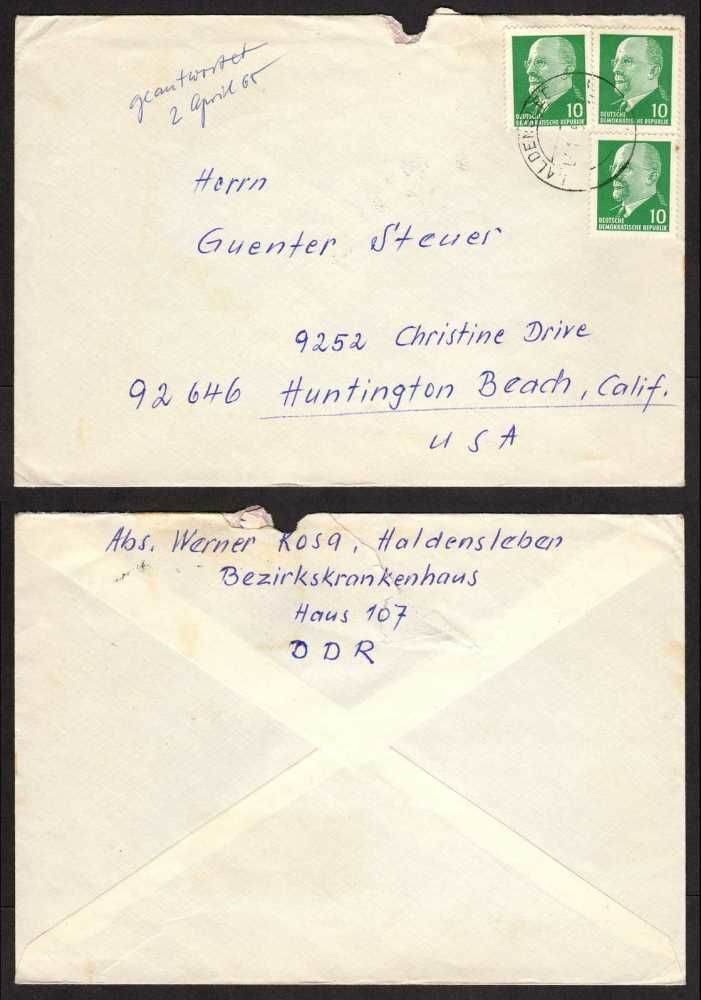 geantwortet
2 April 65
10
DEUTSCHE
DEMOKRATISCHE REPUBLIK
10
DEUTSCHE
DEMOKRATISCHE REPUBLIK
10
DEUTSCHE
DEMOKRATISCHE REPUBLIK
Herrn
Guenter Steuer
9252 Christine Drive
92 646 Huntington Beach, Calif.
USA
Abs. Werner Kosa, Haldensleben
Bezirkskrankenhaus
Haus 107
DDR